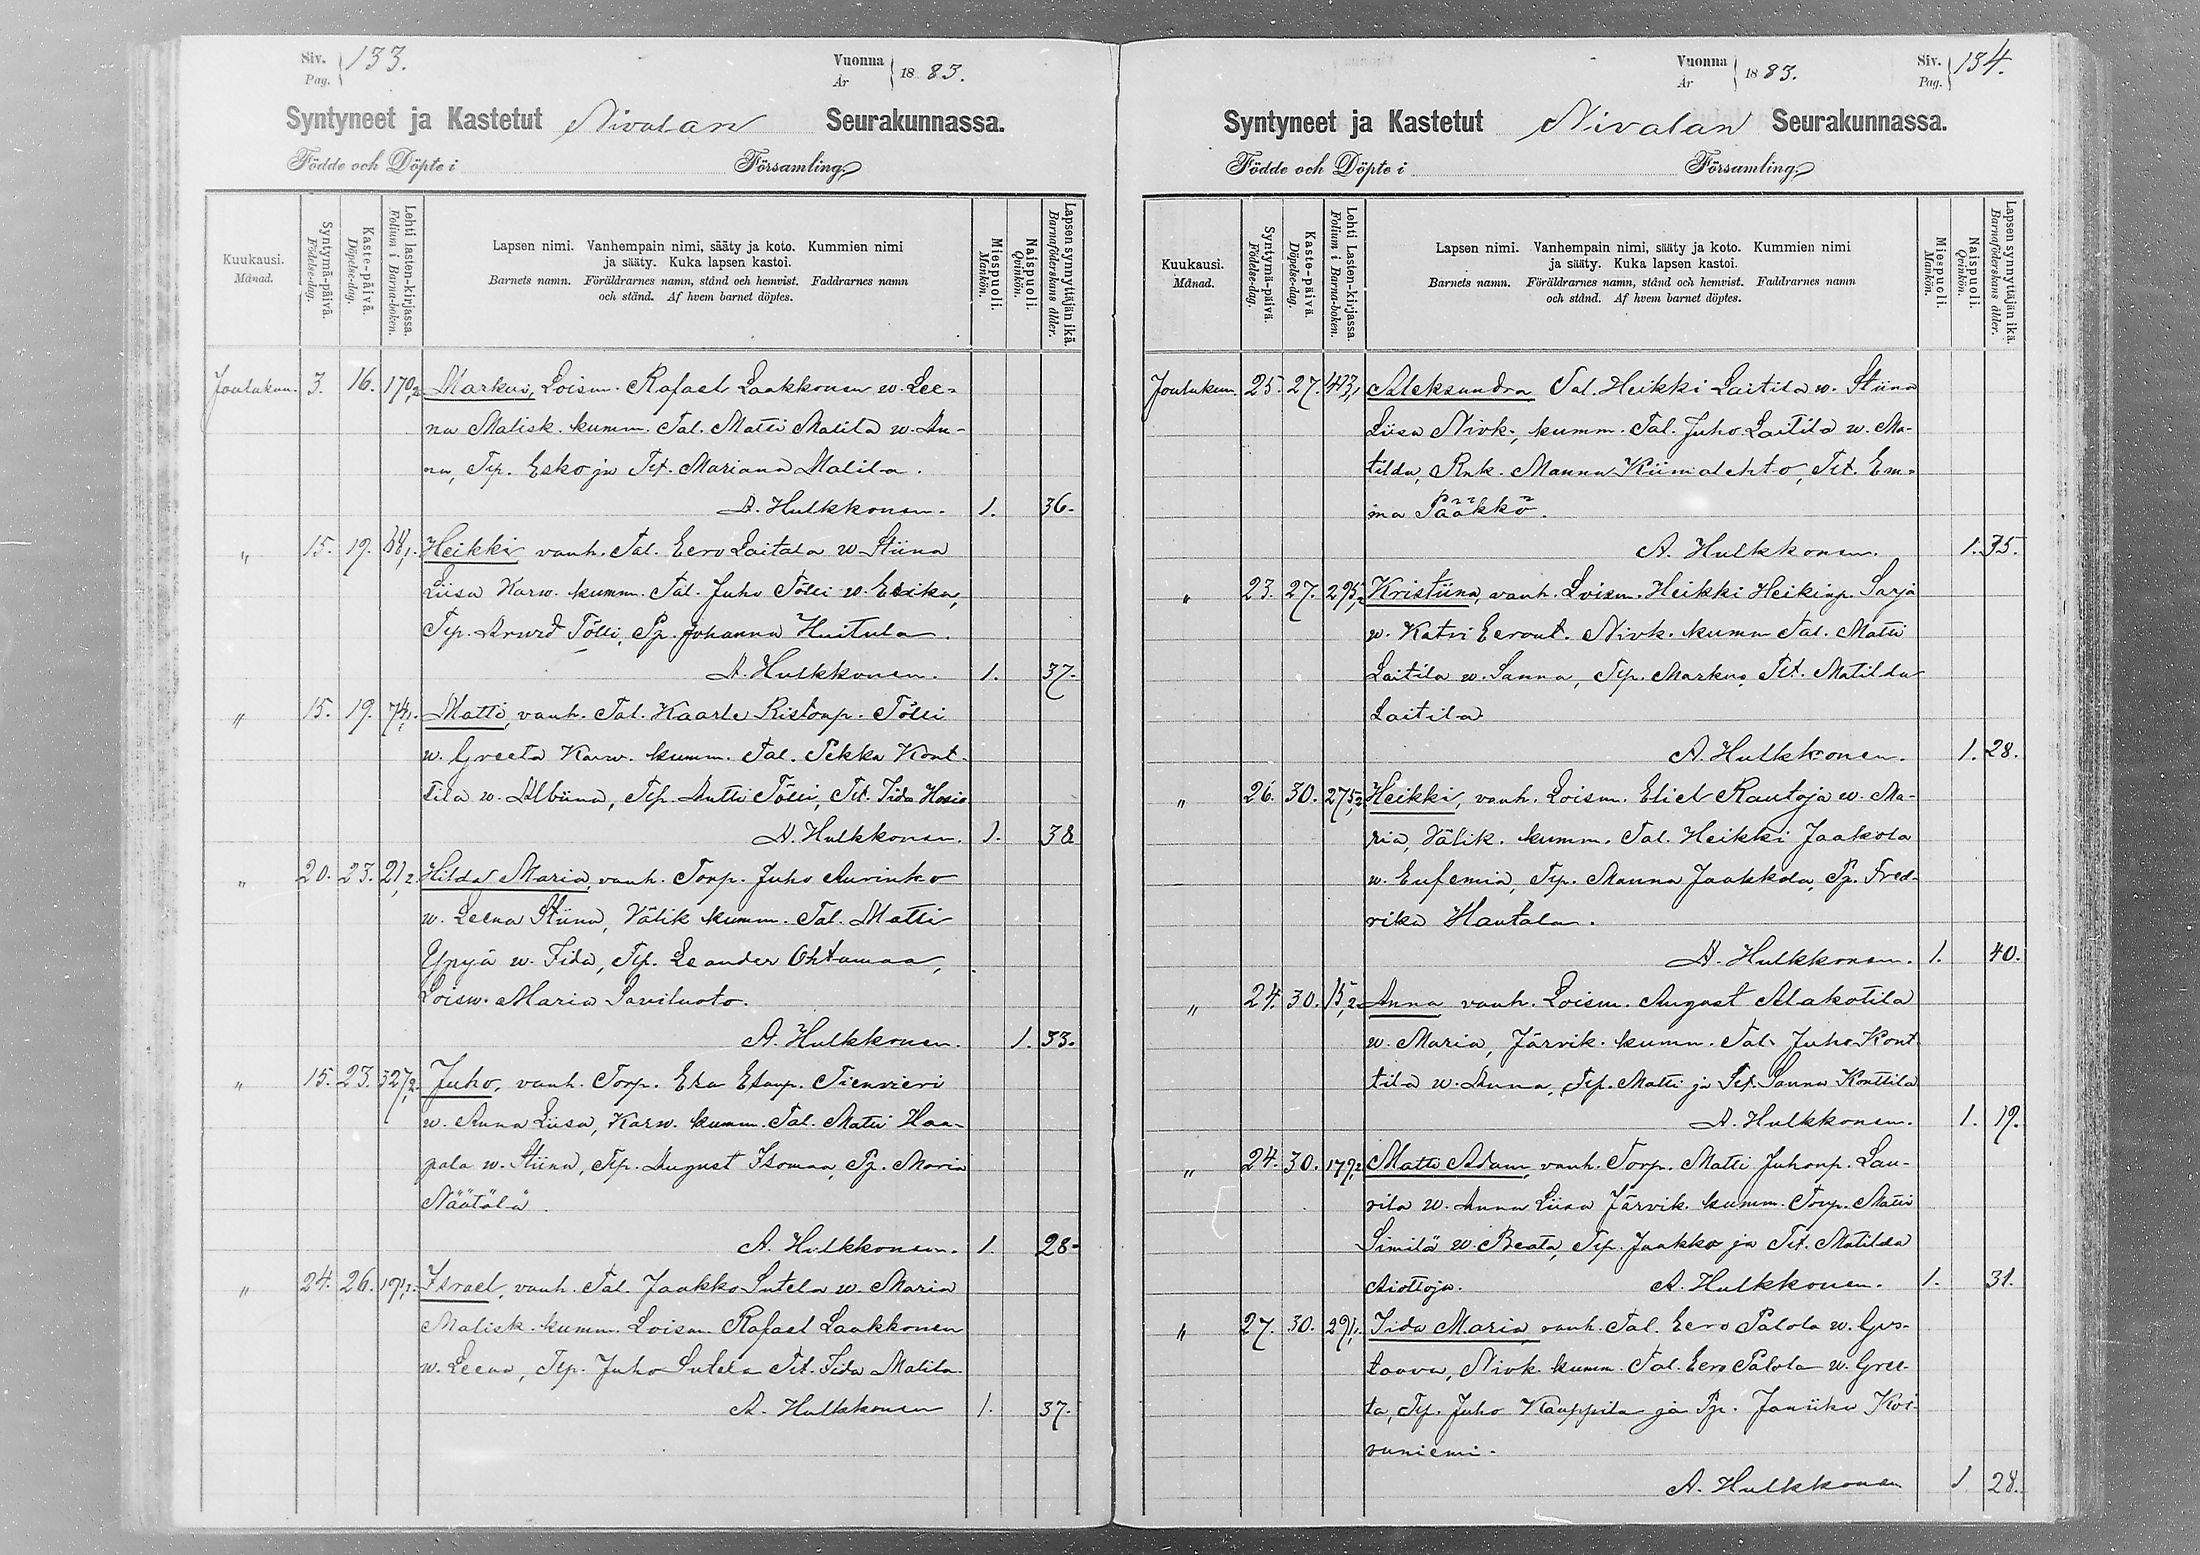 Siv. Pag. 133.
Vuonna År 1883.
Syntyneet ja Kastetut Nivalan Seurakunnassa.
Födde och Döpte i Församling.
Kuukausi. Månad.
Syntymä-päivä. Födelse-dag.
Kaste-päivä. Döpelse-dag.
Lehti lasten-kirjassa. Folium i Barna-boken.
Lapsen nimi. Vanhempain nimi, sääty ja koto. Kummien nimi
ja sääty. Kuka lapsen kastoi.
Barnets namn. Föräldrarnes namn, stånd och hemvist. Faddrarnes namn
och stånd. Af hvem barnet döptes.
Miespuoli. Mankön.
Naispuoli. Qvinkön.
Lapsen synnyttäjän ikä. Barnaföderskans ålder.
Joulukun. 3. 16. 170,2 Markus, Loism. Rafael Laakkonen w. Lee-
na Malisk. kumm. Tal. Matti Malila w. An-
na, Tlp. Esko ja Tlt. Mariana Malila.
A. Hulkkonen. 1. 36.
" 15. 19. 68,1. Heikki vanh. Tal. Eero Laitala w. Stiina
Liisa Karw. kumm. Tal. Juho Tölli w. Erika,
Tlp. Arwid Tölli, Pg. Johanna Huitula.
A. Hulkkonen. 1. 37.
" 15. 19. 74,1. Matti, vanh. Tal. Kaarle Ristonp. Tölli
w. Greeta Karw. kumm. Tal. Pekka Kont-
tila w. Albiina, Tlp. Antti Tölli, Tlt. Iida Hosio
A. Hulkkonen. 1. 38
" 20. 23. 21,2 Hilda Maria, vanh. Torp. Juho Aurinko
w. Leena Stiina, Välik kumm. Tal. Matti
Ypyä w. Iida, Tlp. Leander Ohtamaa,
Loisw. Maria Saviluoto.
A. Hulkkonen. 1. 33.
" 15. 23. 327,2. Juho, vanh. Torp. Esa Esanp. Tienvieri
w. Anna Liisa, Karw. kumm. Tal. Matti Haa-
pala w. Stiina, Tlp. August Isomaa, Pg. Maria
Näätälä.
A. Hulkkonen. 1. 28.
" 24. 26. 191,1. Israel, vanh. Tal. Jaakko Sutela w. Maria
Malisk. kumm. Loism. Rafael Laakkonen
w. Leena, Tlp. Juho Sutela Tlt. Iida Malila.
A. Hulkkonen 1. 37.
Siv. Pag. 134.
Vuonna År 1883.
Syntyneet ja Kastetut Nivalan Seurakunnassa.
Födde och Döpte i Församling.
Kuukausi. Månad.
Syntymä-päivä. Födelse-dag.
Kaste-päivä. Döpelse-dag.
Lehti Lasten-kirjassa. Folium i Barna-boken.
Lapsen nimi. Vanhempain nimi, sääty ja koto. Kummien nimi
ja sääty. Kuka lapsen kastoi.
Barnets namn. Föräldrarnes namn, stånd och hemvist. Faddrarnes namn
och stånd. Af hvem barnet döptes.
Miespuoli. Mankön.
Naispuoli. Qvinkön.
Lapsen synnyttäjän ikä. Barnaföderskans ålder.
Joulukun. 25. 27. 413,1 Aleksandra Tal. Heikki Laitila w. Stiina
Liisa Nivk., kumm. Tal. Juho Laitila w. Ma-
tilda, Rnk. Manna Kiimalehto, Tlt. Em-
ma Pääkkö.
A. Hulkkonen. 1. 35.
" 23. 27. 295,2 Kristiina, vanh. Loism. Heikki Heikinp. Sarja
w. Katri Eeront. Nivk. kumm Tal. Matti
Laitila w. Sanna, Tlp. Markus, Tlt. Matilda
Laitila
A. Hulkkonen. 1. 28.
" 26. 30. 275,2 Heikki, vanh. Loism. Eliel Rautoja w. Ma-
ria, Välik. kumm. Tal. Heikki Jaakola
w. Eufemia, Tlp. Manna Jaakkola, Pg. Fred-
rika Hautala.
A. Hulkkonen. 1. 40.
" 24. 30. 15,2 Anna vanh. Loism. August Alakotila
w. Maria, Järvik. kumm. Tal. Juho Kont
tila w. Anna, Tlp. Matti ja Tlt. Sanna Konttila
A. Hulkkonen. 1. 19.
" 24. 30. 179,2 Matti Adam, vanh. Torp. Matti Juhonp. Lau-
rila w. Anna Liisa Järvik. kumm. Torp. Matti
Similä w. Beata, Tlp. Jaakko ja Tlt. Matilda
Aiottoja. A. Hulkkonen. 1. 31.
" 27. 30. 291,1. Iida Maria, vanh. Tal. Eero Palola w. Gus-
taava, Nivk. kumm. Tal. Eero Palola w. Gree-
ta, Tlp. Juho Kauppila ja Pg. Janiika Koi-
vuniemi.
A. Hulkkonen 1 28.